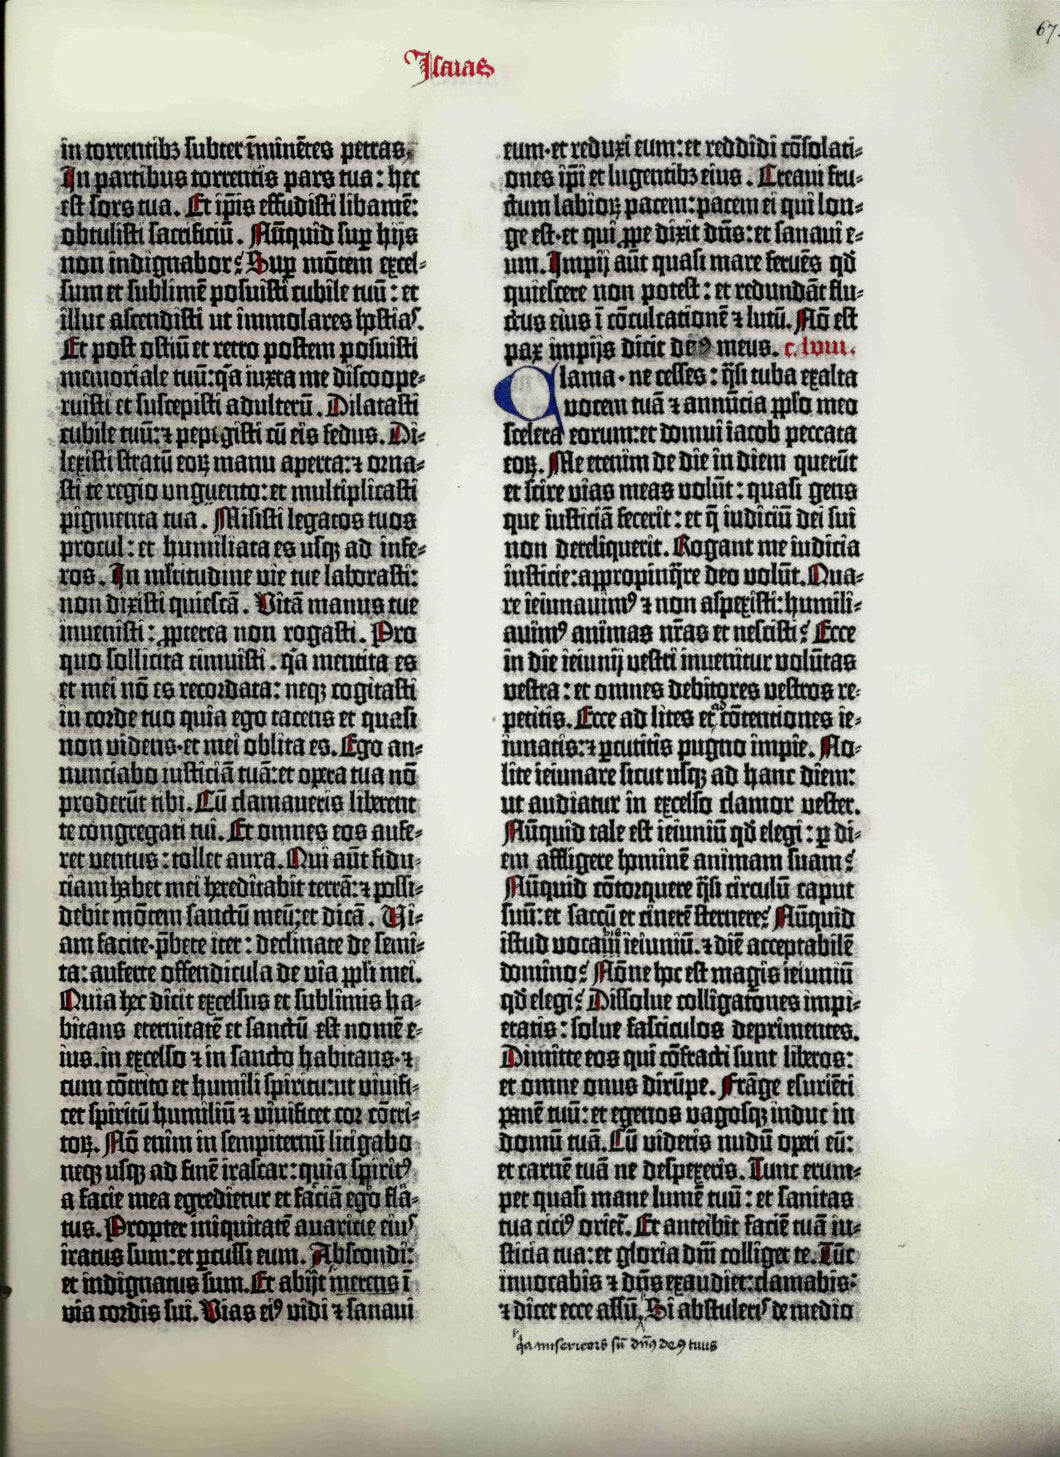 Isaias
67.
in torrentibꝫ subter īminētes petras.
In partibus torrentis pars tua: hec
est sors tua. Et ip̄is effudisti libamē:
obtulisti sacrificiū. Nūquid sup̱ hijs
non indignabor? Sup̱ mōtem excel-
sum et sublimē posuisti cubile tuū: et
illuc ascendisti ut immolares hostias.
Et post ostiū et retro postem posuisti
memoriale tuū: q̄a iuxta me discoope-
ruisti et suscepisti adulterū. Dilatasti
cubile tuū: ⁊ pepigisti cū eis fedus. Di-
lexisti stratū eoꝝ manu aperta: ⁊ orna-
sti te regio unguento: et multiplicasti
pigmenta tua. Misisti legatos tuos
procul: et humiliata es usqꝫ ad infe-
ros. In ml̄titudine vie tue laborasti:
non dixisti quiescā. Vitā manus tue
invenisti: ꝓpterea non rogasti. Pro
quo sollicita timuisti. q̄a mentita es
et mei nō es recordata: neqꝫ cogitasti
in corde tuo quia ego tacens et quasi
non videns·et mei oblita es. Ego an-
nunciabo iusticiā tuā: et opera tua nō
proderūt tibi. Cū clamaveris liberent
te congregati tui. Et omnes eos aufe-
ret ventus: tollet aura. Qui aūt fidu-
ciam habet mei hereditabit terrā: ⁊ possi-
debit mōtem sanctū meū: et dicā. Vi-
am facite·p̄bete iter: declinate de semi-
ta: auferte offendicula de via ꝓpli mei.
Quia hec dicit excelsus et sublimis ha-
bitans eternitatē et sanctū est nomē e-
ius. in excelso ⁊ in sancto habitans·⁊
cum cōtrito et humili spiritu: ut vivifi-
cet spiritū humiliū ⁊ vivificet cor cōtri-
toꝝ. Nō enim in sempiternū litigabo
neqꝫ usqꝫ ad finē irascar: quia spiritꝰ
a facie mea egredietur et faciā ego fla-
tus. Propter iniquitatē avaricie eius
iratus sum: et ꝑcussi eum. Abscondi:
et indignatus sum. Et abijt merens ī
via cordis sui. Vias eiꝰ vidi ⁊ sanavi
eum·et reduxi eum: et reddidi cōsolati-
ones ip̄i et lugentibꝫ eius. Creavi fru-
ctum labioꝝ pacem: pacem ei qui lon-
ge est·et qui ꝓpe dixit dn̄s: et sanavi e-
um. Impij aūt quasi mare fervēs qd̄
quiescere non potest: et redundāt flu-
ctus eius ī cōculcationē ⁊ lutū. Nō est
pax impijs dicit deꝰ meus. c. lviii.
Clama·ne cesses: q̄si tuba exalta
vocem tuā ⁊ annūcia ꝓplo meo
scelera eorum: et domui iacob peccata
eoꝝ. Me etenim de die in diem querūt
et scire vias meas volūt: quasi gens
que iusticiā fecerit: et q̄ iudiciū dei sui
non dereliquerit. Rogant me iudicia
iusticie: appropinq̄re deo volūt. Qua-
re ieiunavimꝰ ⁊ non aspexisti: humili-
avimꝰ animas nr̄as et nescisti? Ecce
in die ieiunij vestri invenitur volūtas
vestra: et omnes debitores vestros re-
petitis. Ecce ad lites et ad cōtentiones ie-
iunatis: ⁊ ꝑcutitis pugno impie. No-
lite ieiunare sicut usqꝫ ad hanc diem:
ut audiatur in excelso clamor vester.
Nūquid tale est ieiuniū qd̄ elegi: ꝑ di-
em affligere hominē animam suam?
Nūquid cōtorquere q̄si circulū caput
suū: et saccū et cinerē sternere? Nūquid
istud vocabis ieiuniū. ⁊ diē acceptabilē
domino? Nōne hoc est magis ieiuniū
qd̄ elegi? Dissolve colligatōnes impi-
etatis: solve fasciculos deprimentes.
Dimitte eos qui cōfracti sunt liberos:
et omne onus dirūpe. Frāge esuriēti
panē tuū: et egenos vagosqꝫ induc in
domū tuā. Cū videris nudū operi eū:
et carnē tuā ne despexeris. Tunc erum-
pet quasi mane lumē tuū: et sanitas
tua citiꝰ oriet̄. Et anteibit faciē tuā iu-
sticia tua: et gloria dn̄i colliget te. Tūc
invocabis ⁊ dn̄s exaudiet: clamabis:
⁊ dicet ecce assū. Si abstuleris de medio
q̄a misericors sū dn̄s deꝰ tuus